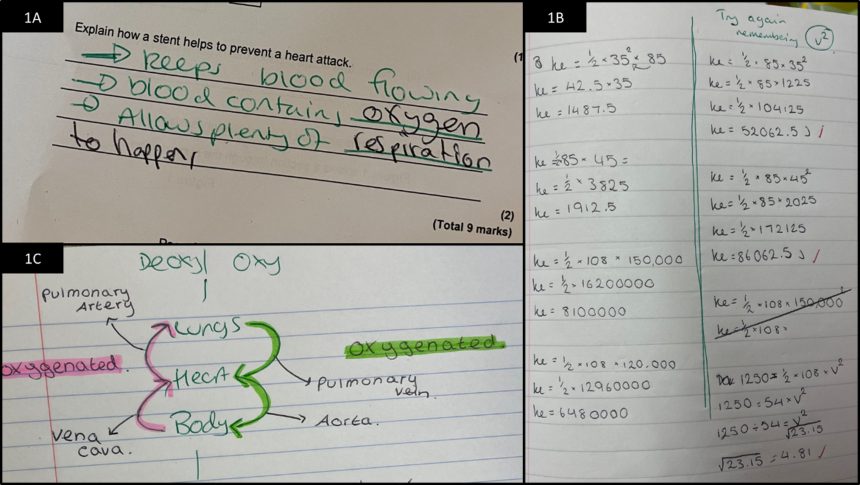 1A
Explain how a stent helps to prevent a heart attack.
(1
→ keeps blood flowing
→ blood contains oxygen
→ Allows plenty of respiration
to happen
(2)
(Total 9 marks)
1B
ke = ½ × 35² × 85
ke = 42.5 × 35
ke = 1487.5
ke ½ 85 × 45 =
ke = ½ × 3825
ke = 1912.5
ke = ½ × 108 × 150,000
ke = ½ × 16200000
ke = 8100000
ke = ½ × 108 × 120,000
ke = ½ × 12960000
ke = 6480000
Try again
remembering v²
ke = ½ × 85 × 35²
ke = ½ × 85 × 1225
ke = ½ × 104125
ke = 52062.5 J
ke = ½ × 85 × 45²
ke = ½ × 85 × 2025
ke = ½ × 172125
ke = 86062.5 J
ke = ½ × 108 × 150,000²
ke = ½ × 108 ×
1250 = ½ × 108 × v²
1250 = 54 × v²
1250 ÷ 54 = v²
√23.15
√23.15 = 4.81
1C
Deoxy | Oxy
Pulmonary
Artery
Lungs
oxygenated.
oxygenated.
Heart
Pulmonary
vein.
Body
Aorta.
Vena
cava.